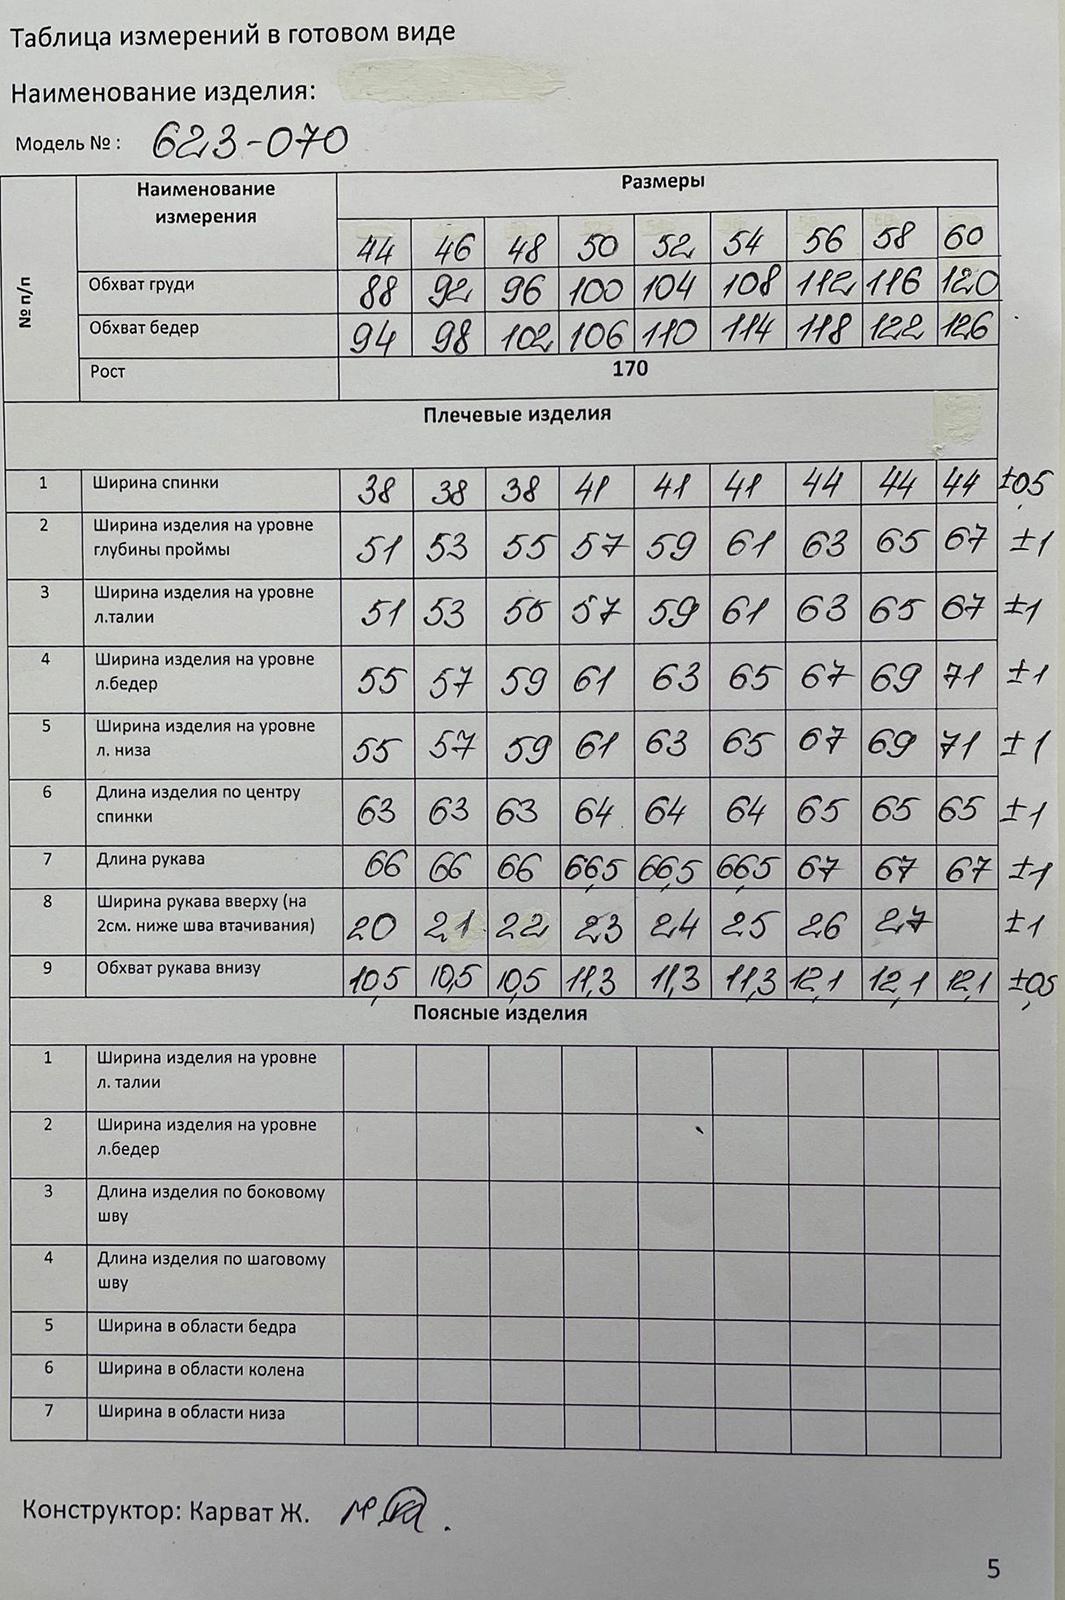 Таблица измерений в готовом виде
Наименование изделия:
Модель № : 623-070
№ п/п
Наименование измерения
Размеры
44 46 48 50 52 54 56 58 60
Обхват груди 88 92 96 100 104 108 112 116 120
Обхват бедер 94 98 102 106 110 114 118 122 126
Рост 170
Плечевые изделия
1 Ширина спинки 38 38 38 41 41 41 44 44 44 ±0,5
2 Ширина изделия на уровне
глубины проймы 51 53 55 57 59 61 63 65 67 ±1
3 Ширина изделия на уровне
л.талии 51 53 55 57 59 61 63 65 67 ±1
4 Ширина изделия на уровне
л.бедер 55 57 59 61 63 65 67 69 71 ±1
5 Ширина изделия на уровне
л. низа 55 57 59 61 63 65 67 69 71 ±1
6 Длина изделия по центру
спинки 63 63 63 64 64 64 65 65 65 ±1
7 Длина рукава 66 66 66 66,5 66,5 66,5 67 67 67 ±1
8 Ширина рукава вверху (на
2см. ниже шва втачивания) 20 21 22 23 24 25 26 27 ±1
9 Обхват рукава внизу 10,5 10,5 10,5 11,3 11,3 11,3 12,1 12,1 12,1 ±0,5
Поясные изделия
1 Ширина изделия на уровне
л. талии
2 Ширина изделия на уровне
л.бедер
3 Длина изделия по боковому
шву
4 Длина изделия по шаговому
шву
5 Ширина в области бедра
6 Ширина в области колена
7 Ширина в области низа
Конструктор: Карват Ж.
5